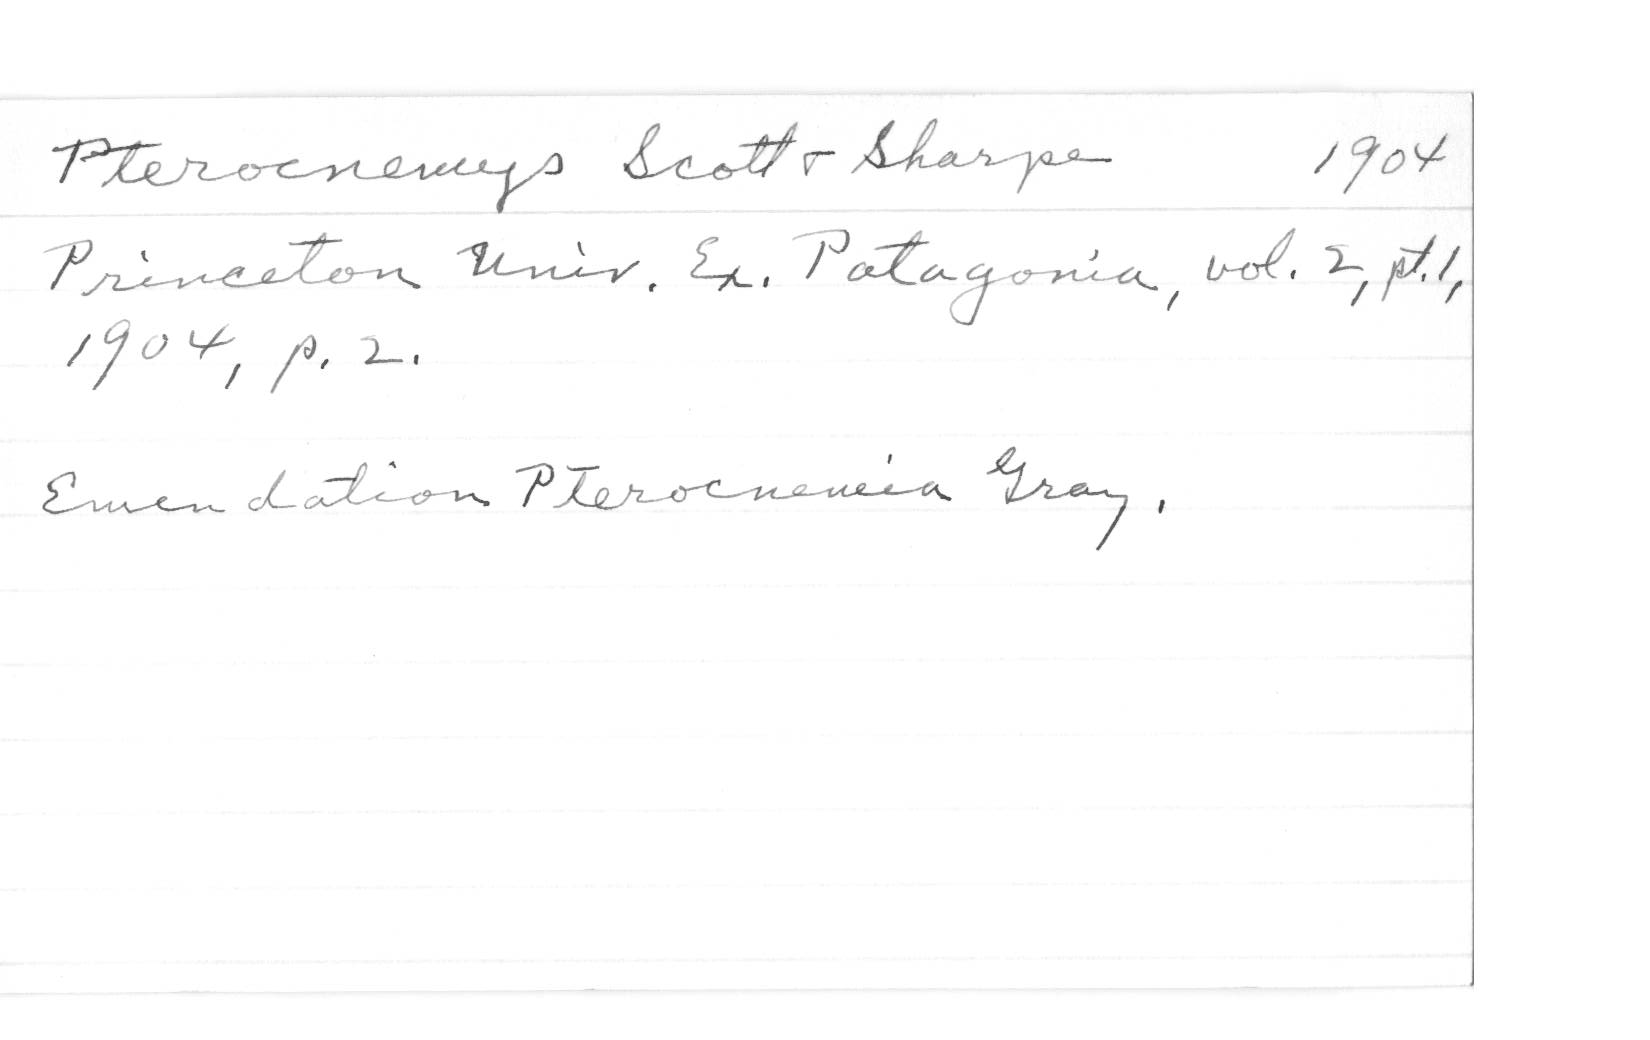 Pterocnemys Scott & Sharpe 1904
Princeton Univ. Ex. Patagonia, vol. 2, pt. 1,
1904, p. 2.
Emendation Pterocnemia Gray.